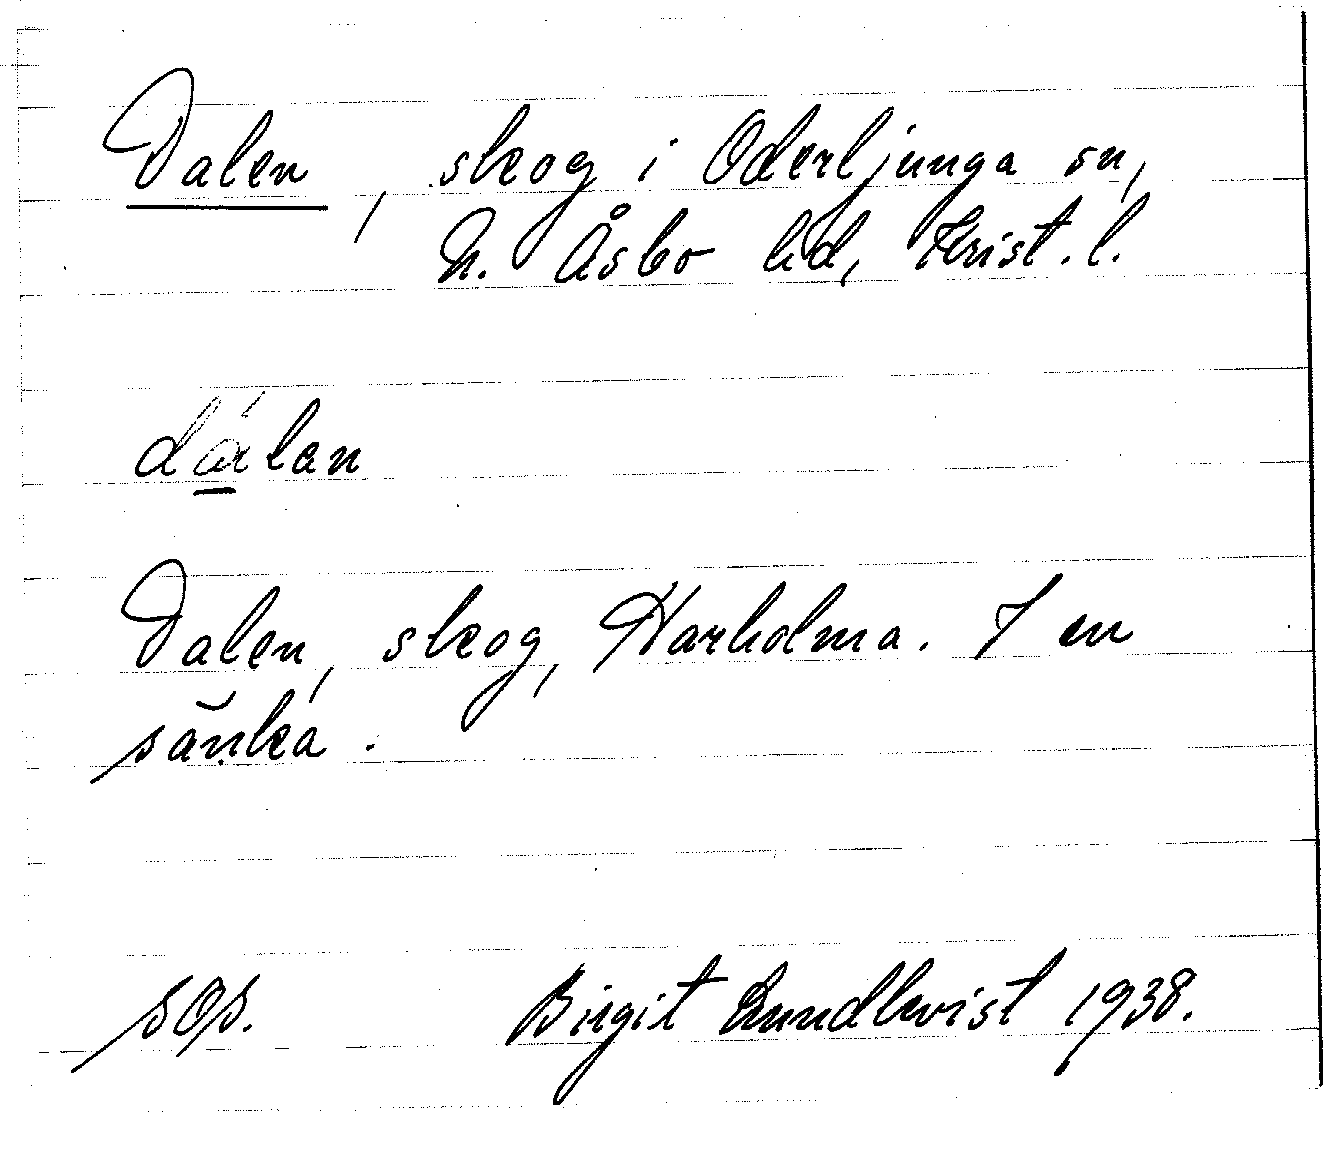 Dalen, skog i Oderljunga sn,
N. Åsbo hd, Krist. l.
dálan
Dalen, skog, Harholma. I en
sänka.
sOs. Birgit Lundkvist 1938.